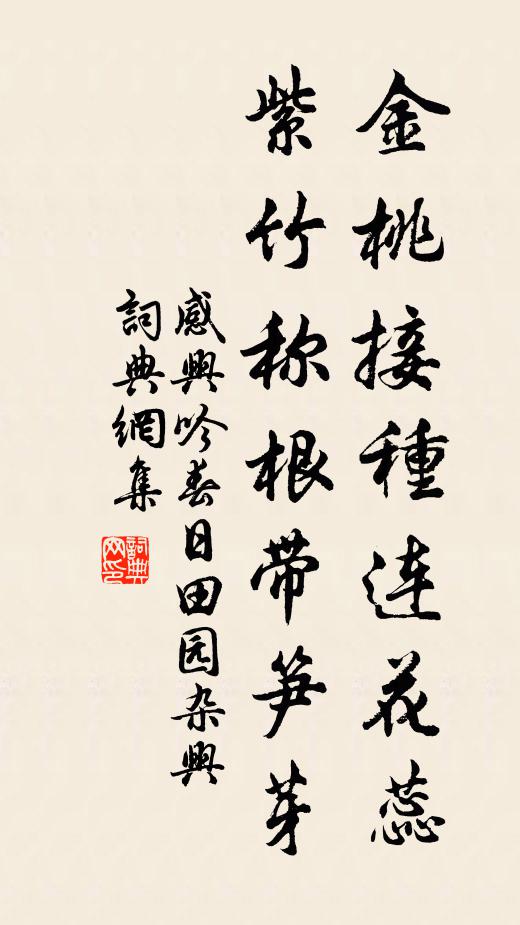 金桃接種连花蕊
紫竹称根带笋芽
感興吟春日田园杂興
詞典網集
詞典网印